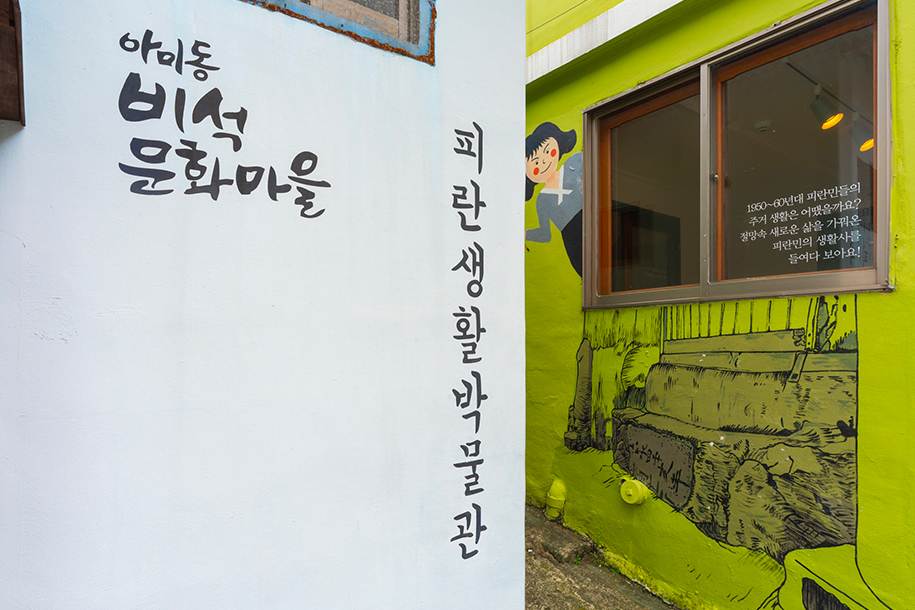 아미동
비석
문화마을
피란생활박물관
1950~60년대 피란민들의
주거 생활은 어땠을까요?
절망속 새로운 삶을 가꿔온
피란민의 생활사를
들여다 보아요!